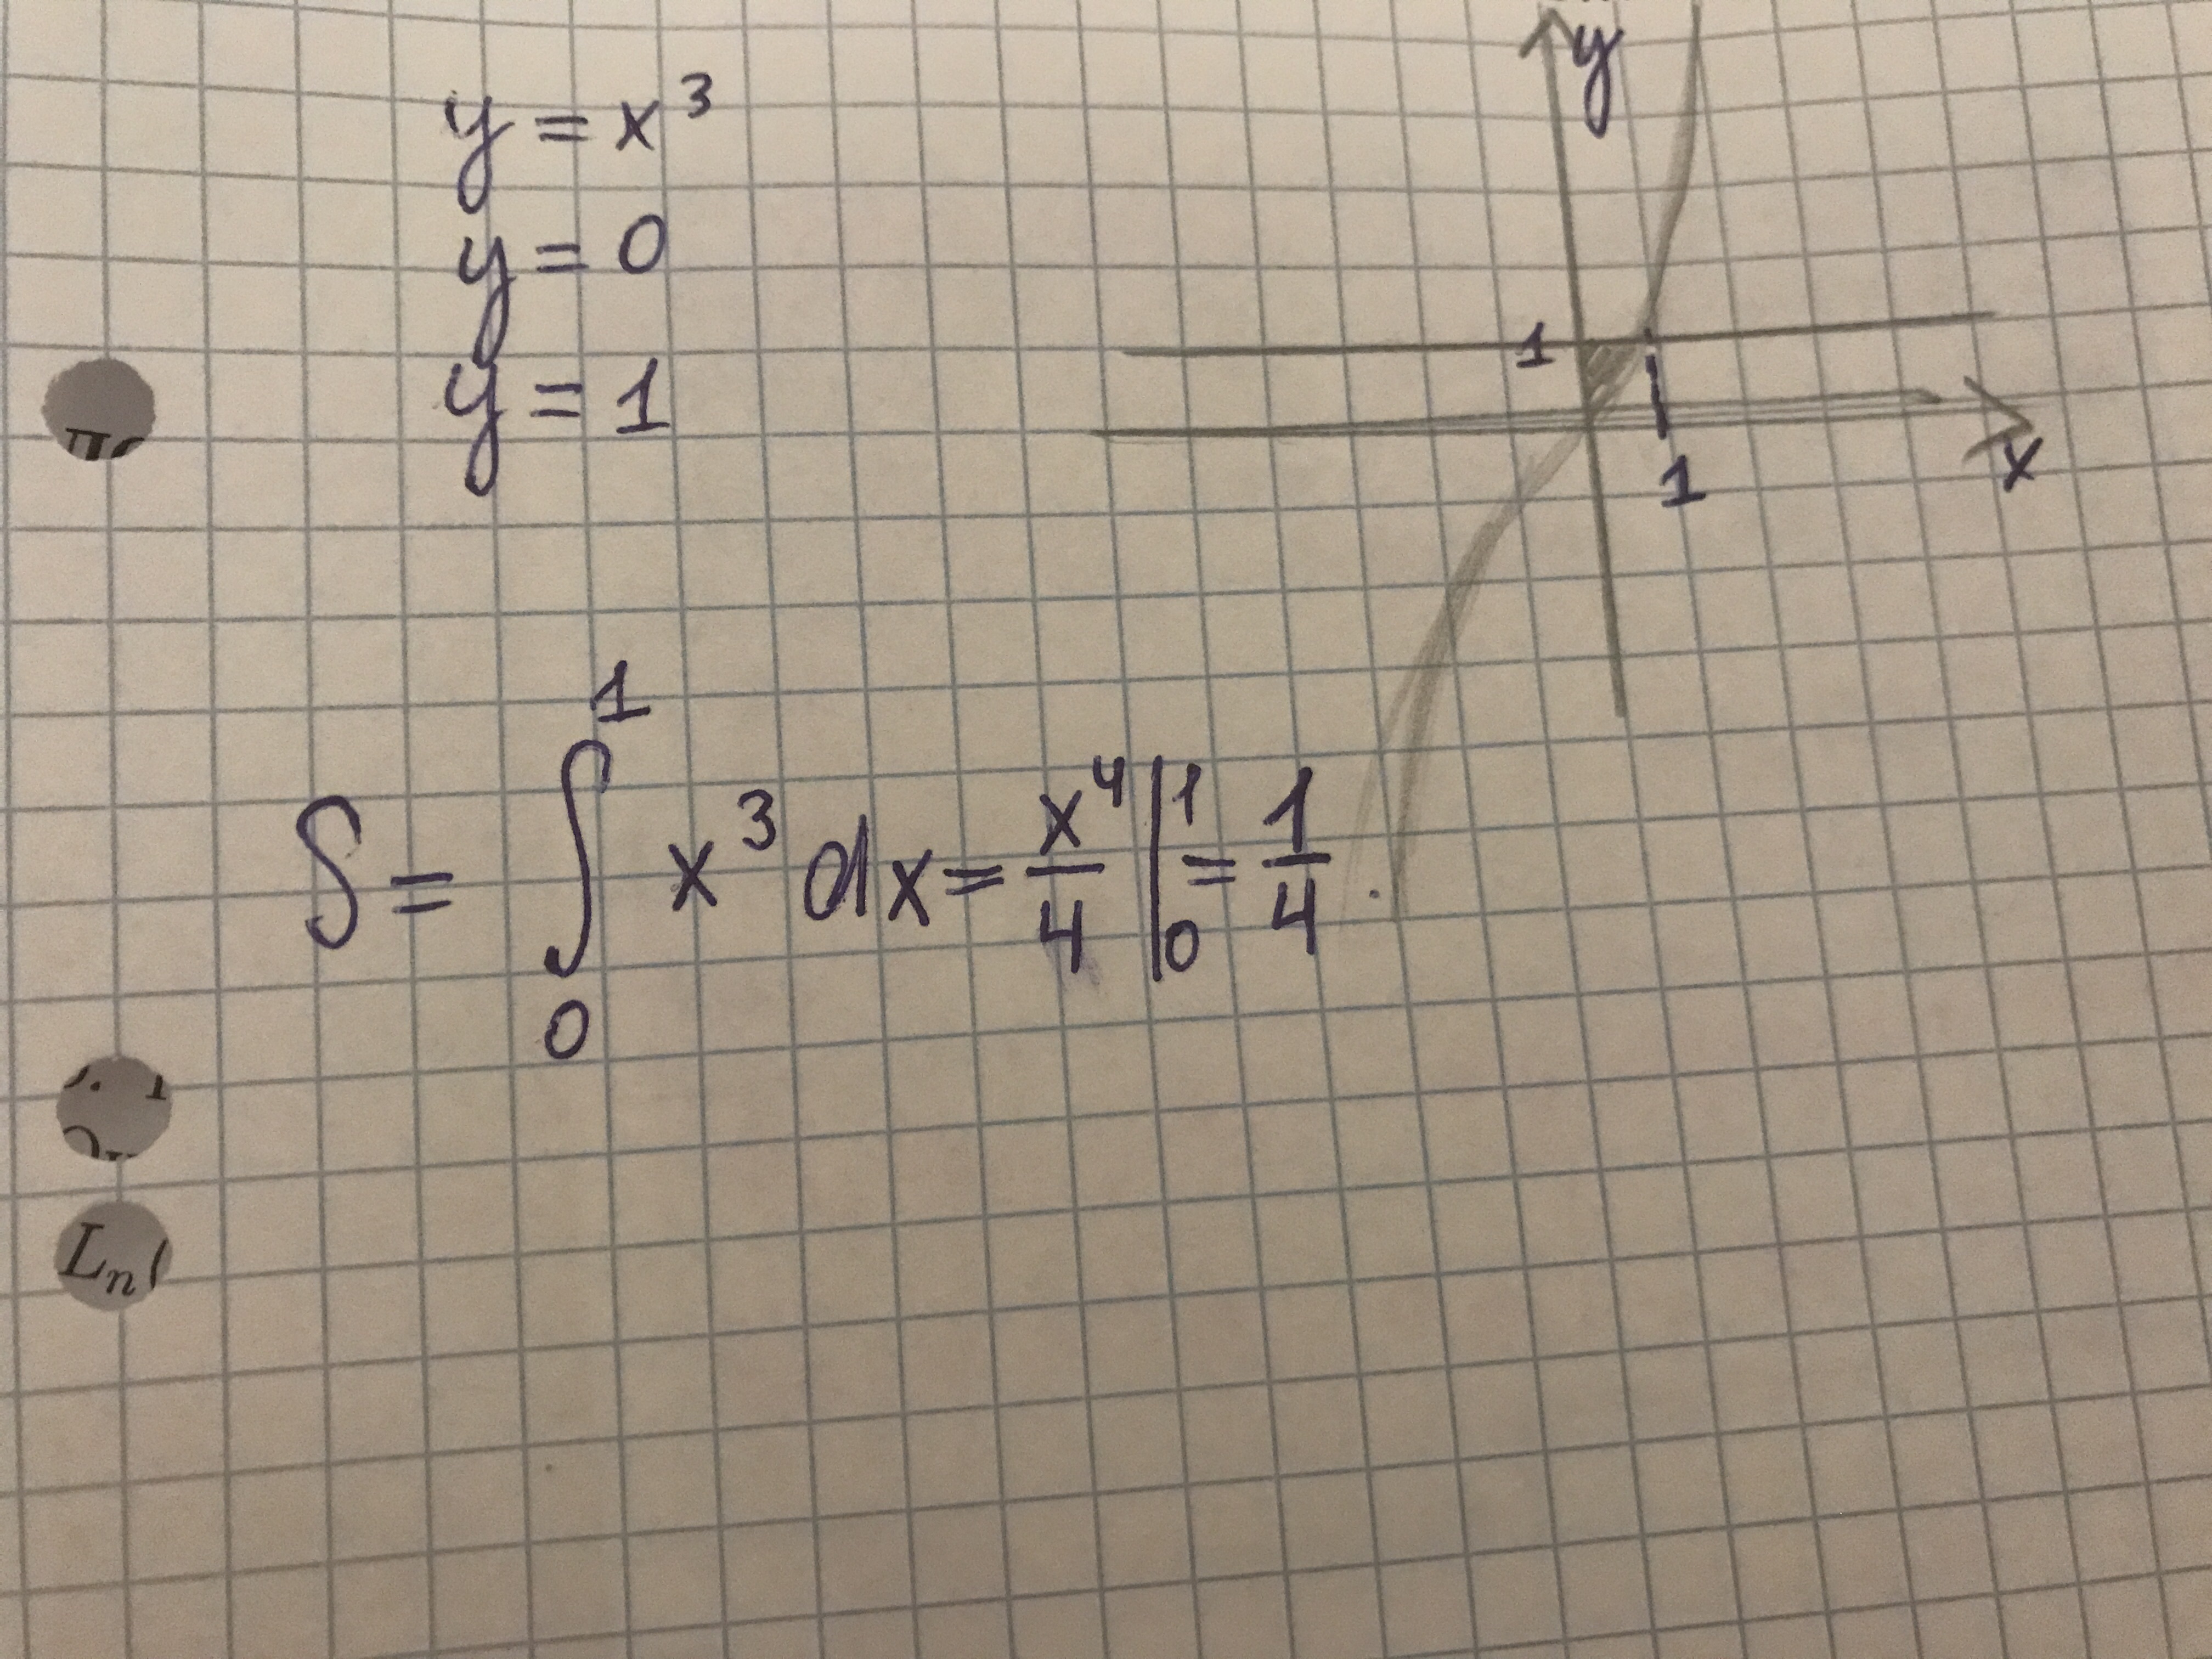 y = x³
y = 0
y = 1
y
1
1
x
S = ∫₀¹ x³ dx = x⁴/4 |₀¹ = 1/4 .
Lₙ(